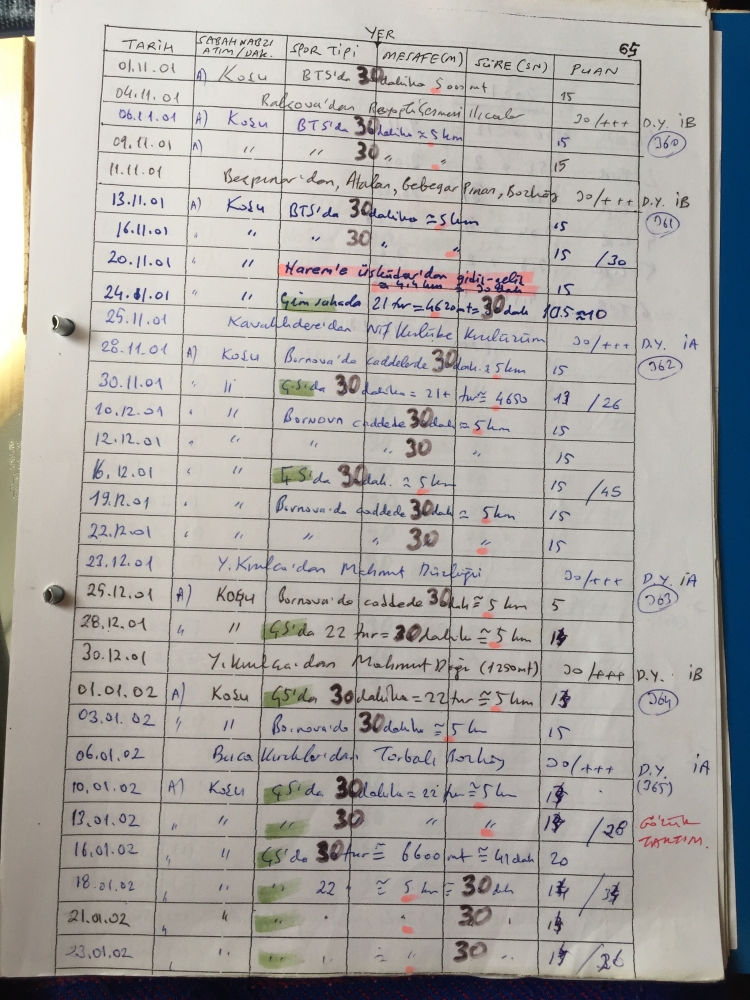 YER
65
TARİH SABAH NABZI ATIM/DAK. SPOR TİPİ MESAFE(M) SÜRE(SN) PUAN
01.11.01 A) Koşu BTS'da 30 dakika 5000mt 15
04.11.01 Balçova'dan Ilıcalar 30/+++ D.Y. İB
06.11.01 A) Koşu BTS'da 30 dakika ≈ 5km 15 360
09.11.01 A) " " 30 " " 15
11.11.01 Beşpınar'dan, Atalan, Gebeşar Pınarı, Bozköy 30/+++ D.Y. İB
13.11.01 A) Koşu BTS'da 30 dakika ≅ 5km 15 361
16.11.01 " " " 30 " " 15 /30
20.11.01 " " Harem'e Üsküdar'dan gidiş-geliş ≈ 4,4 km = 30 dak 15
24.11.01 " " Çim sahada 21 tur = 4620mt = 30 dak 10.5 ≈ 10
25.11.01 Kavaklıdere'den Nif Kulübe 30/+++ D.Y. İA
28.11.01 A) Koşu Bornova'da caddelerde 30 dak. ≈ 5km 15 362
30.11.01 " " ÇS'da 30 dakika = 21+ tur ≅ 4650 13 /26
10.12.01 " " Bornova caddede 30 dak ≈ 5 km 15
12.12.01 " " " " 30 " 15
16.12.01 " " ÇS'da 30 dak. ≈ 5 km 15 /45
19.12.01 " " Bornova'da caddede 30 dak ≈ 5km 15
22.12.01 " " " " 30 " 15
23.12.01 Y. Kızılca'dan Mahmut Düzlüğü 30/+++ D.Y. İA
25.12.01 A) Koşu Bornova'da caddede 30 dak ≅ 5 km 5 363
28.12.01 " " ÇS'da 22 tur = 30 dakika ≅ 5 km
30.12.01 Y. Kızılca'dan Mahmut Dağı (1250mt) 30/+++ D.Y. İB
01.01.02 A) Koşu ÇS'da 30 dakika = 22 tur ≅ 5 km 364
03.01.02 " " Bornova'da 30 dakika ≅ 5 km 15
06.01.02 Buca Kırıklar'dan Torbalı Bozköy 30/+++ D.Y. İA
10.01.02 A) Koşu ÇS'da 30 dakika = 22 tur ≅ 5 km (365)
13.01.02 " " " 30 " " /28 TANTIM.
16.01.02 " " ÇS'da 30 tur ≅ 6600 mt ≅ 41 dak 20
18.01.02 " " " 22 " ≅ 5 km ≅ 30 dak
21.01.02 " " " " " 30 "
23.01.02 " " " " " 30 " /26